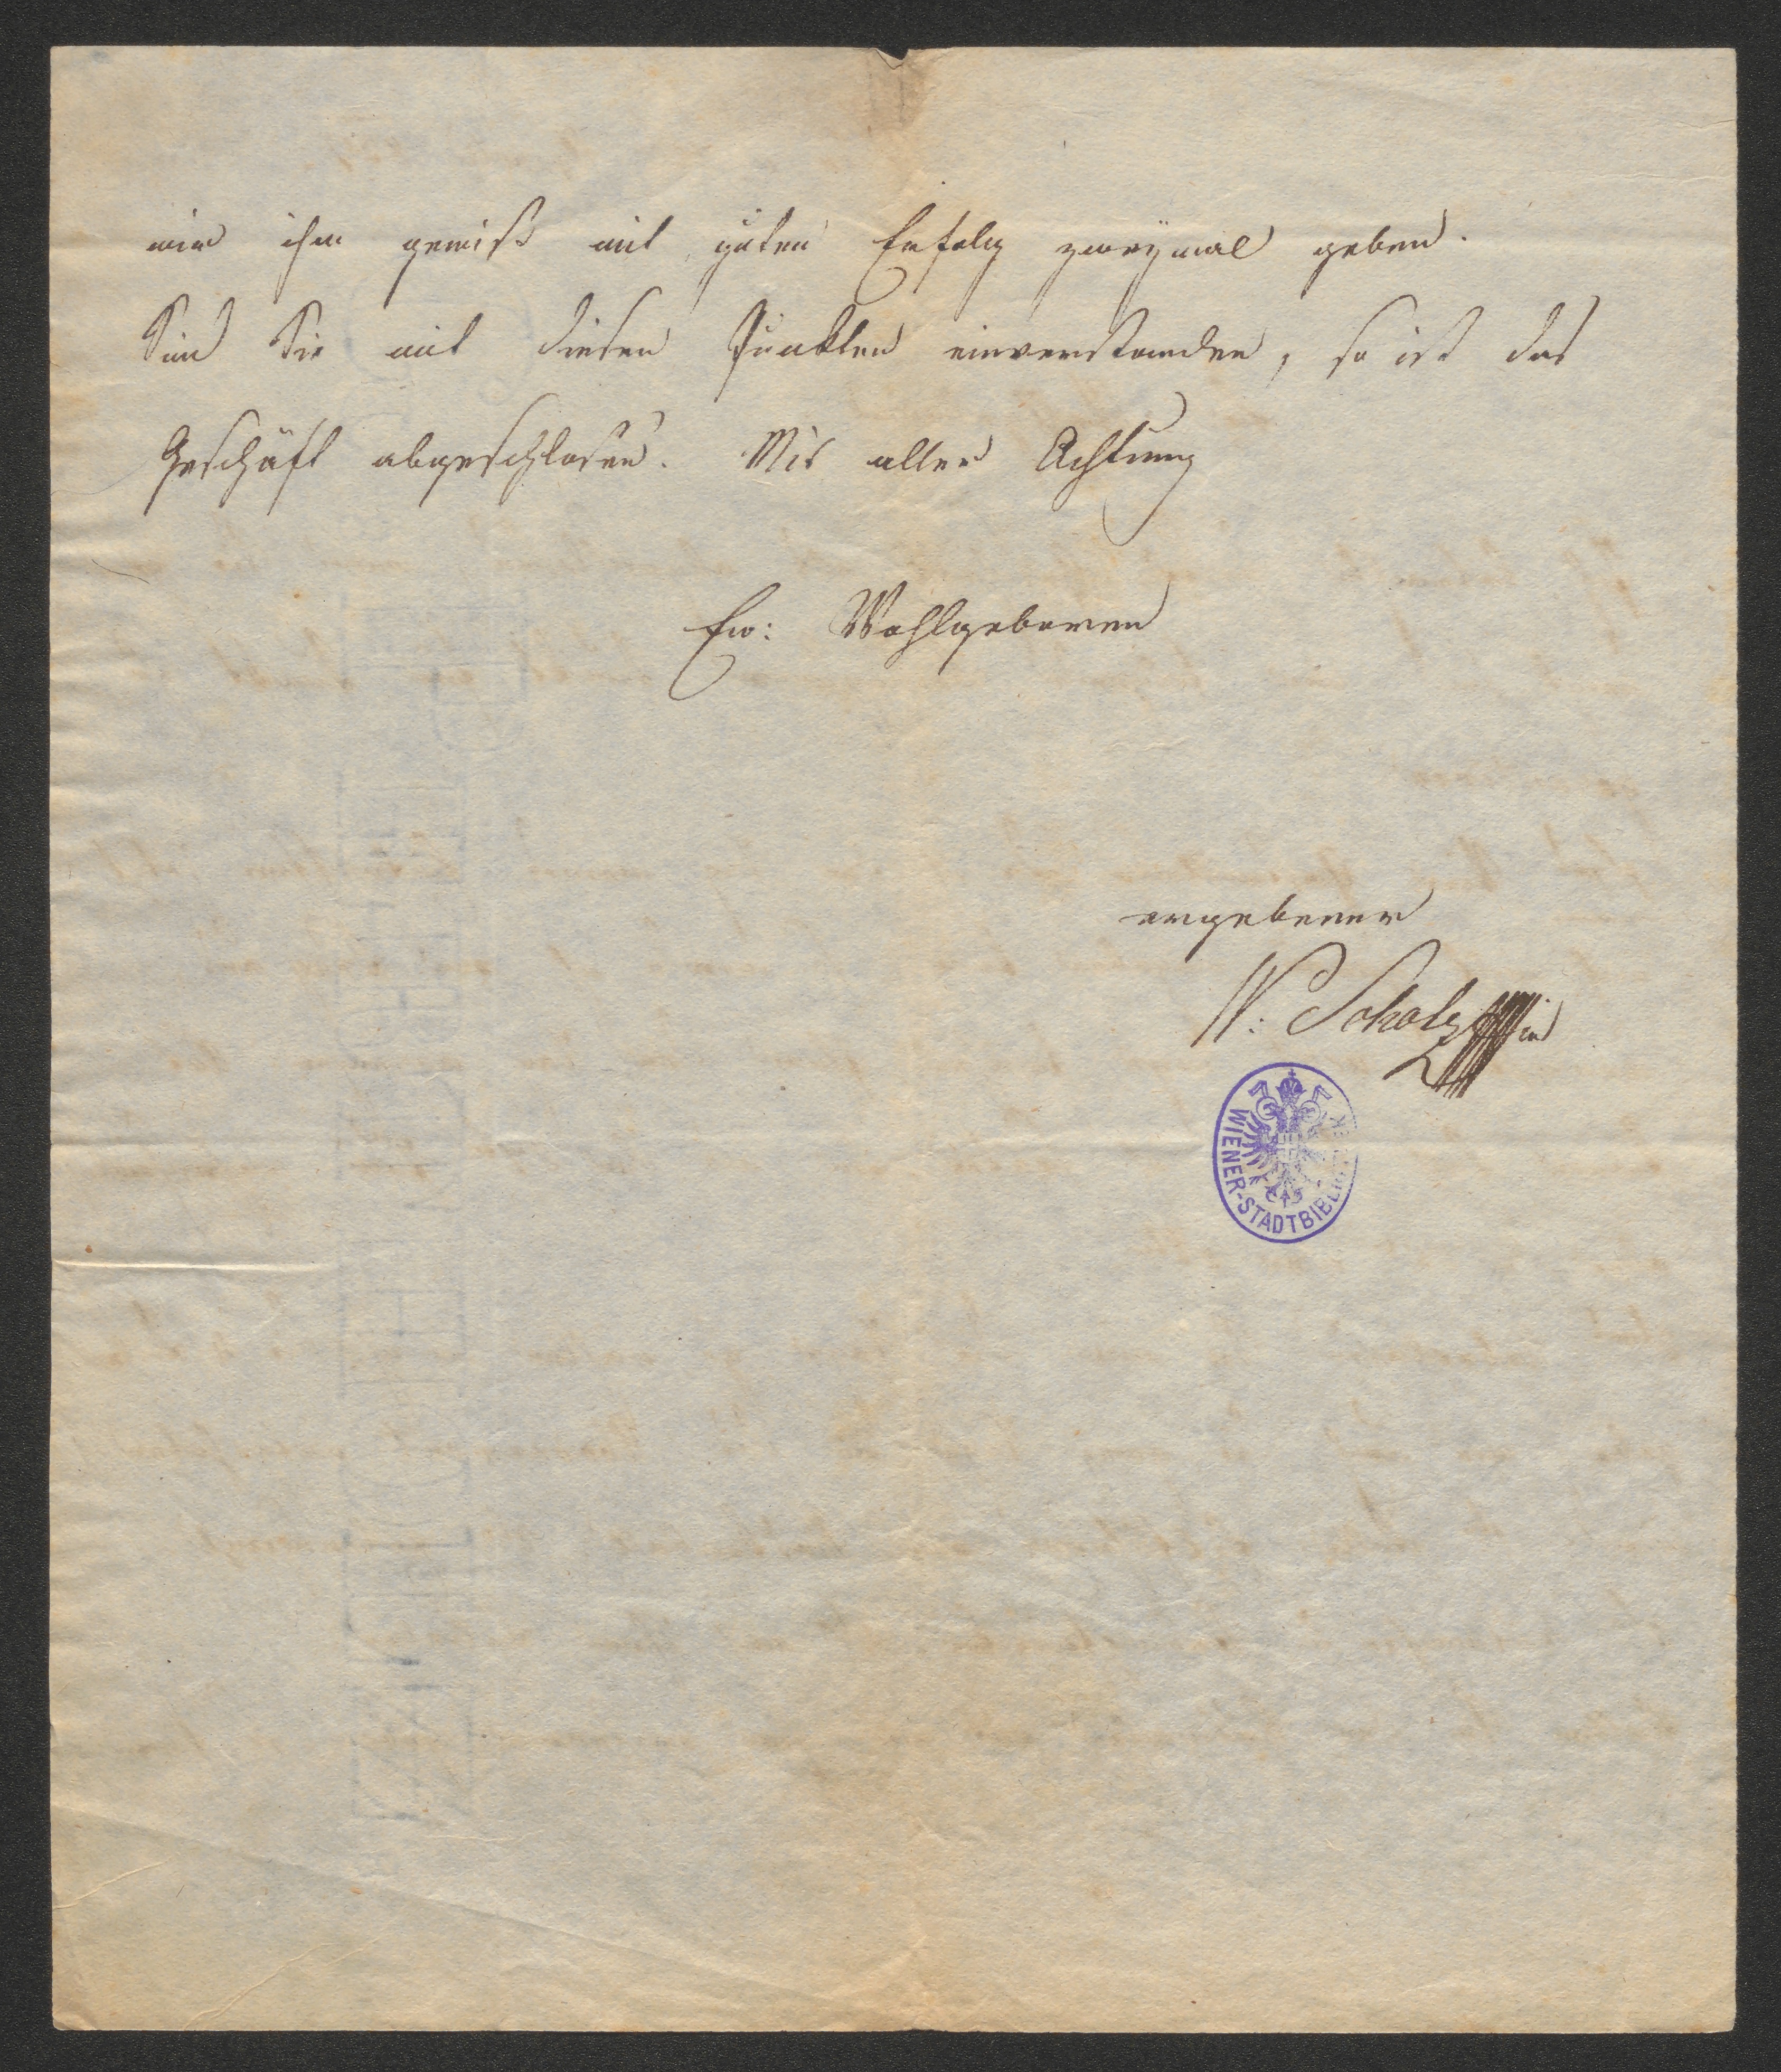 wir ihn gewiß mit guten Erfolg zweymal geben.
Sind Sie mit diesen Punkten einverstanden, so ist das
Geschäft abgeschlosen. Mit aller Achtung
Ew: Wohlgeboren
ergebener
W: Scholz
WIENER-STADTBIBLIOTHEK